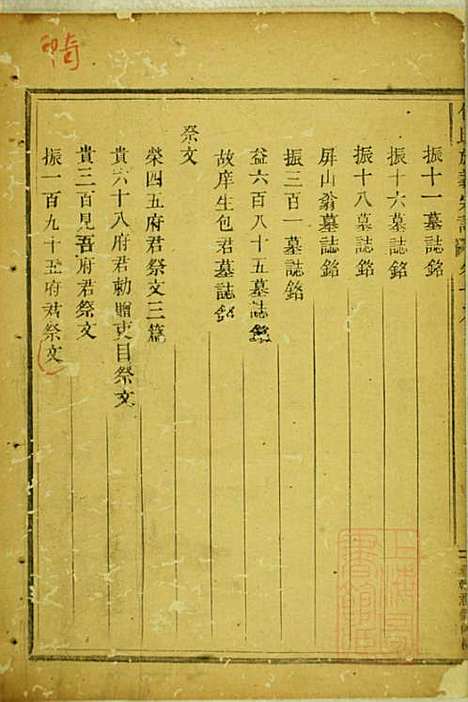 振十一墓誌銘
振十六墓誌銘
振十八墓誌銘
屏山翁墓誌銘
振三百一墓誌銘
益六百八十五墓誌銘
故庠生包君墓誌銘
祭文
榮四五府君祭文三篇
貴六十八府君勅贈吏目祭文
貴三百見吾府君祭文
振一百九十五府君祭文